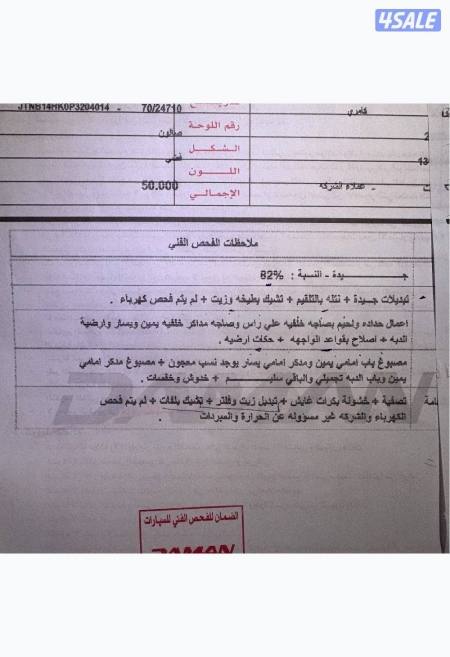 4SALE
JTNB14HK0P3204014 - 70/24710 كامري
رقم اللوحة
الشكل صالون
اللون فضي
الإجمالي 50.000 - عملاء الشركه
ملاحظات الفحص الفني
جـــيـدة - النسبة : 82%
تبديلات جيدة + نتله بالتلقيم + تشيك بطيخه وزيت + لم يتم فحص كهرباء .
اعمال حداده ولحيم بصاجه خلفيه علي راس وصاجه مداكر خلفيه يمين ويسار وارضية
الدبه + اصلاح بقواعد الواجهه + حكات ارضيه .
مصبوغ باب امامي يمين ومدكر امامي يسار يوجد نسب معجون + مصبوغ مدكر امامي
يمين وباب الدبه تجميلي والباقي سليـــم + خدوش وخفسات .
تصفية + خشونة بكرات غايش + تبديل زيت وفلتر + تشيك بلفات + لم يتم فحص
الكهرباء والشركه غير مسؤوله عن الحرارة والمبردات .
الضمان للفحص الفني للسيارات
DAMAN